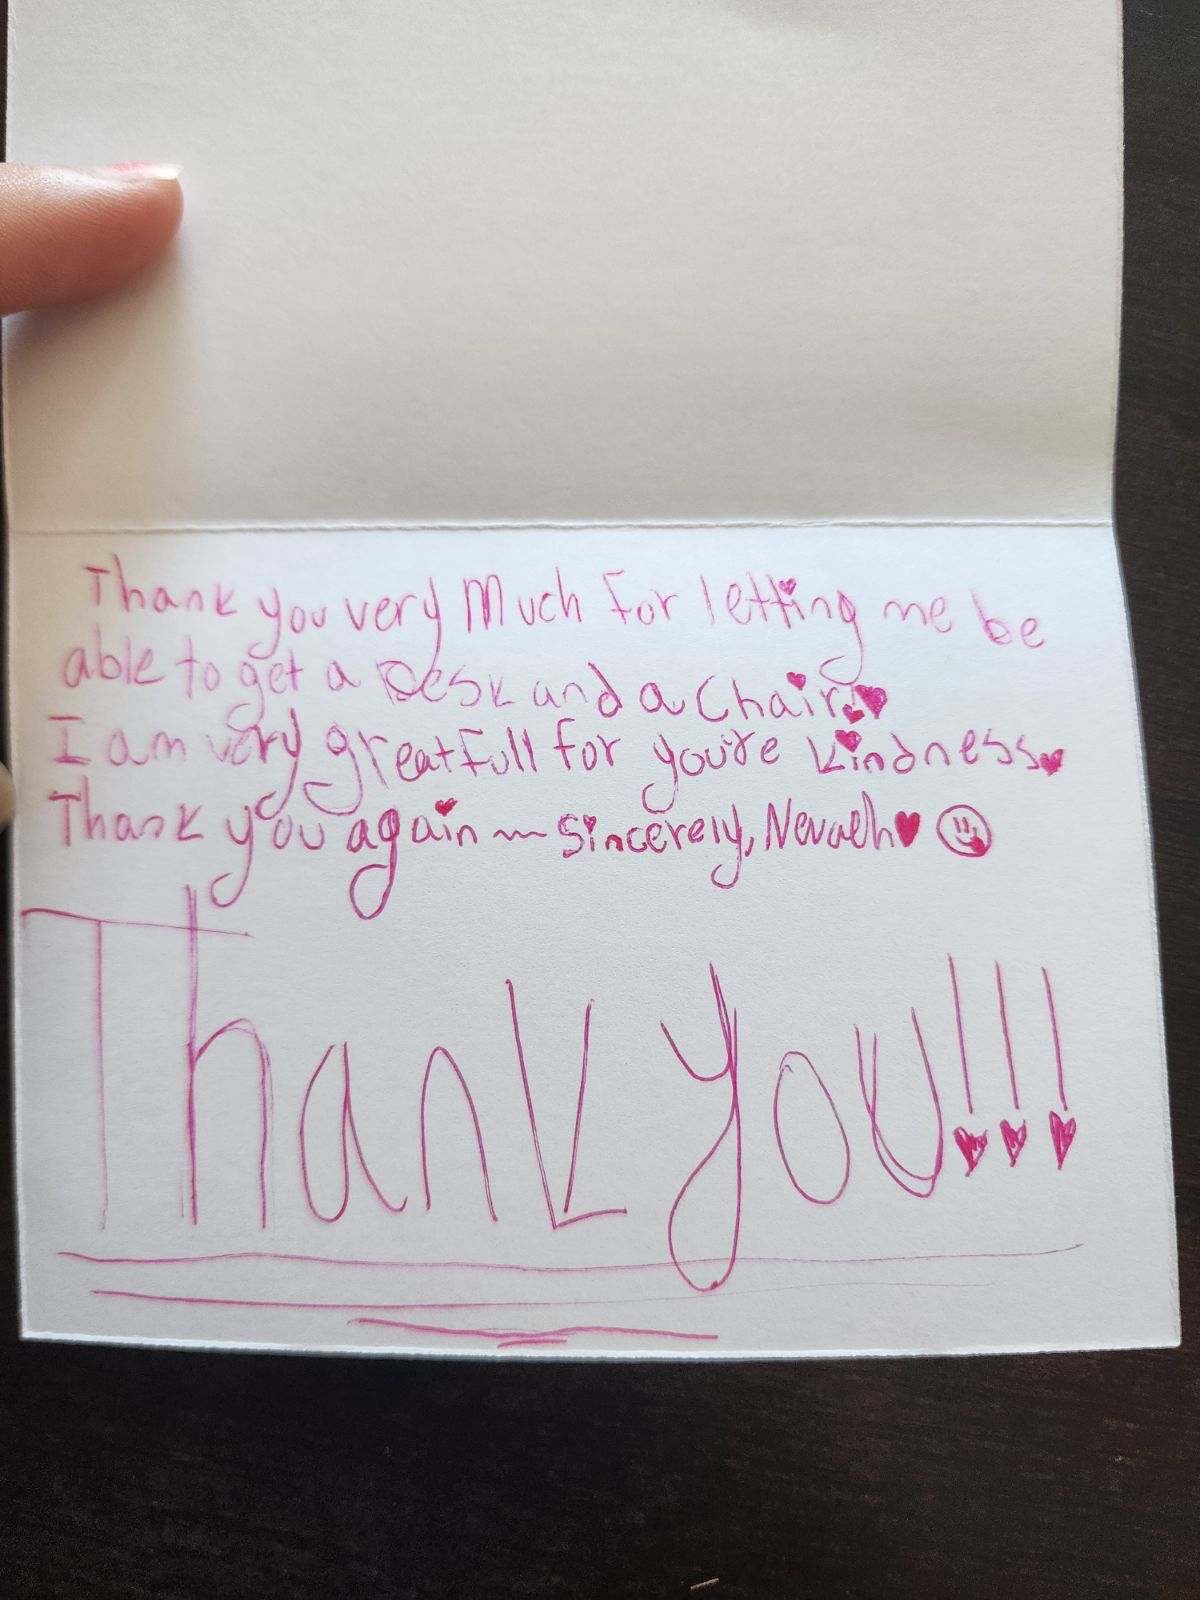 Thank you very Much For letting me be
able to get a Desk and a Chair!♥
I am very greatFull for you're kindness♥
Thank you again ~ Sincerely, Nevaeh♥ ☺
Thank you!!!